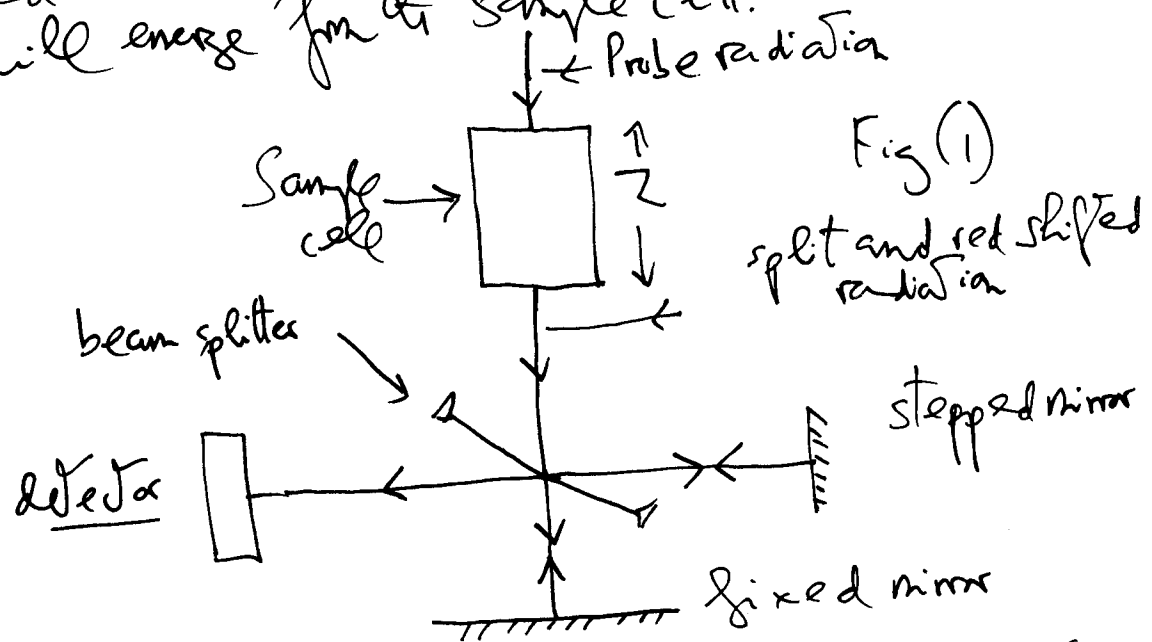 will emerge from the sample cell.
Probe radiation
Sample
cell
Z
Fig (1)
split and red shifted
radiation
beam splitter
stepped mirror
detector
fixed mirror